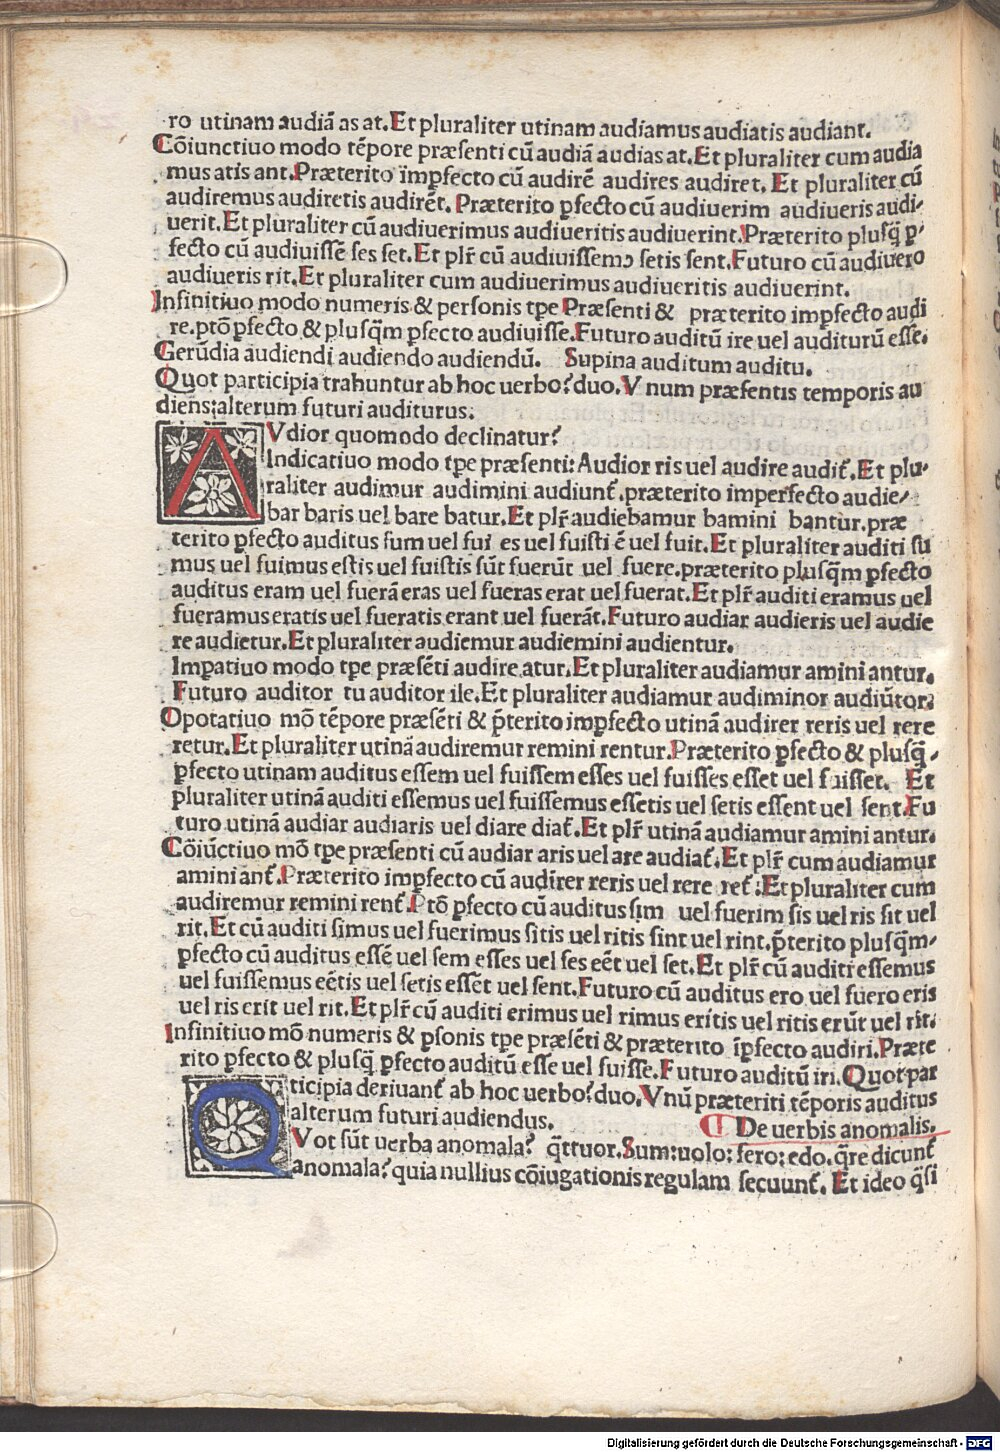 ro utinam audiã as at. Et pluraliter utinam audiamus audiatis audiant.
Cõiunctiuo modo tẽpore præsenti cũ audiã audias at. Et pluraliter cum audia
mus atis ant. Præterito imꝑfecto cũ audirẽ audires audiret. Et pluraliter cũ
audiremus audiretis audirẽt. Præterito ꝑfecto cũ audiuerim audiueris audi-
uerit. Et pluraliter cũ audiuerimus audiueritis audiuerint. Præterito plusq̃ ꝑ-
fecto cũ audiuissẽ ses set. Et plr̃ cũ audiuissemꝰ setis sent. Futuro cũ audiuero
audiueris rit. Et pluraliter cum audiuerimus audiueritis audiuerint.
Infinitiuo modo numeris & personis tpe Præsenti & præterito imꝑfecto audi
re. ptõ ꝑfecto & plusq̃m ꝑfecto audiuisse. Futuro auditũ ire uel auditurũ esse.
Gerũdia audiendi audiendo audiendũ. Supina auditum auditu.
Quot participia trahuntur ab hoc uerbo? duo. Vnum præsentis temporis au
diens: alterum futuri auditurus.
AVdior quomodo declinatur?
Indicatiuo modo tpe præsenti: Audior ris uel audire audit̃. Et plu-
raliter audimur audimini audiunt̃. præterito imperfecto audie-
bar baris uel bare batur. Et plr̃ audiebamur bamini bantur. præ
terito ꝑfecto auditus sum uel fui es uel fuisti ẽ uel fuit. Et pluraliter auditi su
mus uel fuimus estis uel fuistis sũt fuerũt uel fuere. præterito plusq̃m ꝑfecto
auditus eram uel fuerã eras uel fueras erat uel fuerat. Et plr̃ auditi eramus uel
fueramus eratis uel fueratis erant uel fuerãt. Futuro audiar audieris uel audie
re audietur. Et pluraliter audiemur audiemini audientur.
Imꝑatiuo modo tpe præsẽti audire atur. Et pluraliter audiamur amini antur.
Futuro auditor tu auditor ile. Et pluraliter audiamur audiminor audiũtor.
Opotatiuo mõ tẽpore præsẽti & p̃terito imꝑfecto utinã audirer reris uel rere
retur. Et pluraliter utinã audiremur remini rentur. Præterito ꝑfecto & plusq̃-
ꝑfecto utinam auditus essem uel fuissem esses uel fuisses esset uel fuisset. Et
pluraliter utinã auditi essemus uel fuissemus essetis uel setis essent uel sent. Fu
turo utinã audiar audiaris uel diare diat̃. Et plr̃ utinã audiamur amini antur.
Cõiũctiuo mõ tpe præsenti cũ audiar aris uel are audiat̃. Et plr̃ cum audiamur
amini ant̃. Præterito imꝑfecto cũ audirer reris uel rere ret̃: Et pluraliter cum
audiremur remini rent̃. Ptõ ꝑfecto cũ auditus sim uel fuerim sis uel ris sit uel
rit. Et cũ auditi simus uel fuerimus sitis uel ritis sint uel rint. p̃terito plusq̃m-
ꝑfecto cũ auditus essẽ uel sem esses uel ses eẽt uel set. Et plr̃ cũ auditi essemus
uel fuissemus eẽtis uel setis essẽt uel sent. Futuro cũ auditus ero uel fuero eris
uel ris erit uel rit. Et plr̃ cũ auditi erimus uel rimus eritis uel ritis erũt uel rit.
Infinitiuo mõ numeris & ꝑsonis tpe præsẽti & præterito ĩꝑfecto audiri. Præte
rito ꝑfecto & plusq̃ ꝑfecto auditũ esse uel fuisse. Futuro auditũ iri. Quot par
ticipia deriuant̃ ab hoc uerbo? duo. Vnũ præteriti tẽporis auditus
alterum futuri audiendus. De uerbis anomalis.
QVot sũt uerba anomala? q̃ttuor. Sum: uolo: fero: edo. q̃re dicunt̃
anomala? quia nullius cõiugationis regulam secuunt̃. Et ideo q̃si
Digitalisierung gefördert durch die Deutsche Forschungsgemeinschaft - DFG